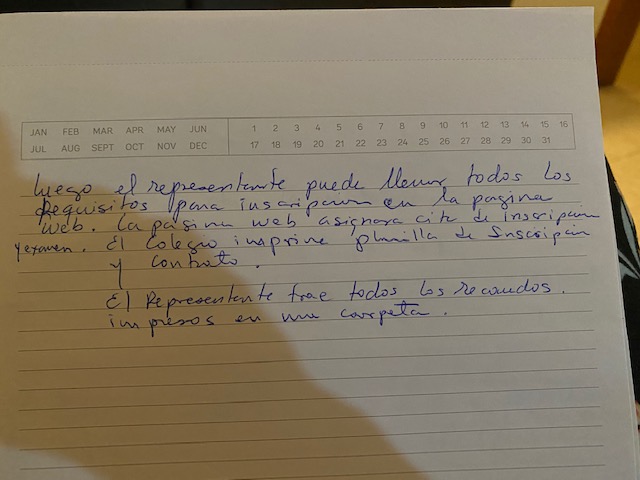 JAN FEB MAR APR MAY JUN 1 2 3 4 5 6 7 8 9 10 11 12 13 14 15 16
JUL AUG SEPT OCT NOV DEC 17 18 19 20 21 22 23 24 25 26 27 28 29 30 31
Luego el representante puede llenar todos los
Requisitos para inscripcion en la pagina
web. La pagina web asignara cita de inscripcion
y examen. El Colegio imprime planilla de Inscripción
y contrato.
El Representante trae todos los recaudos.
impresos en una carpeta.